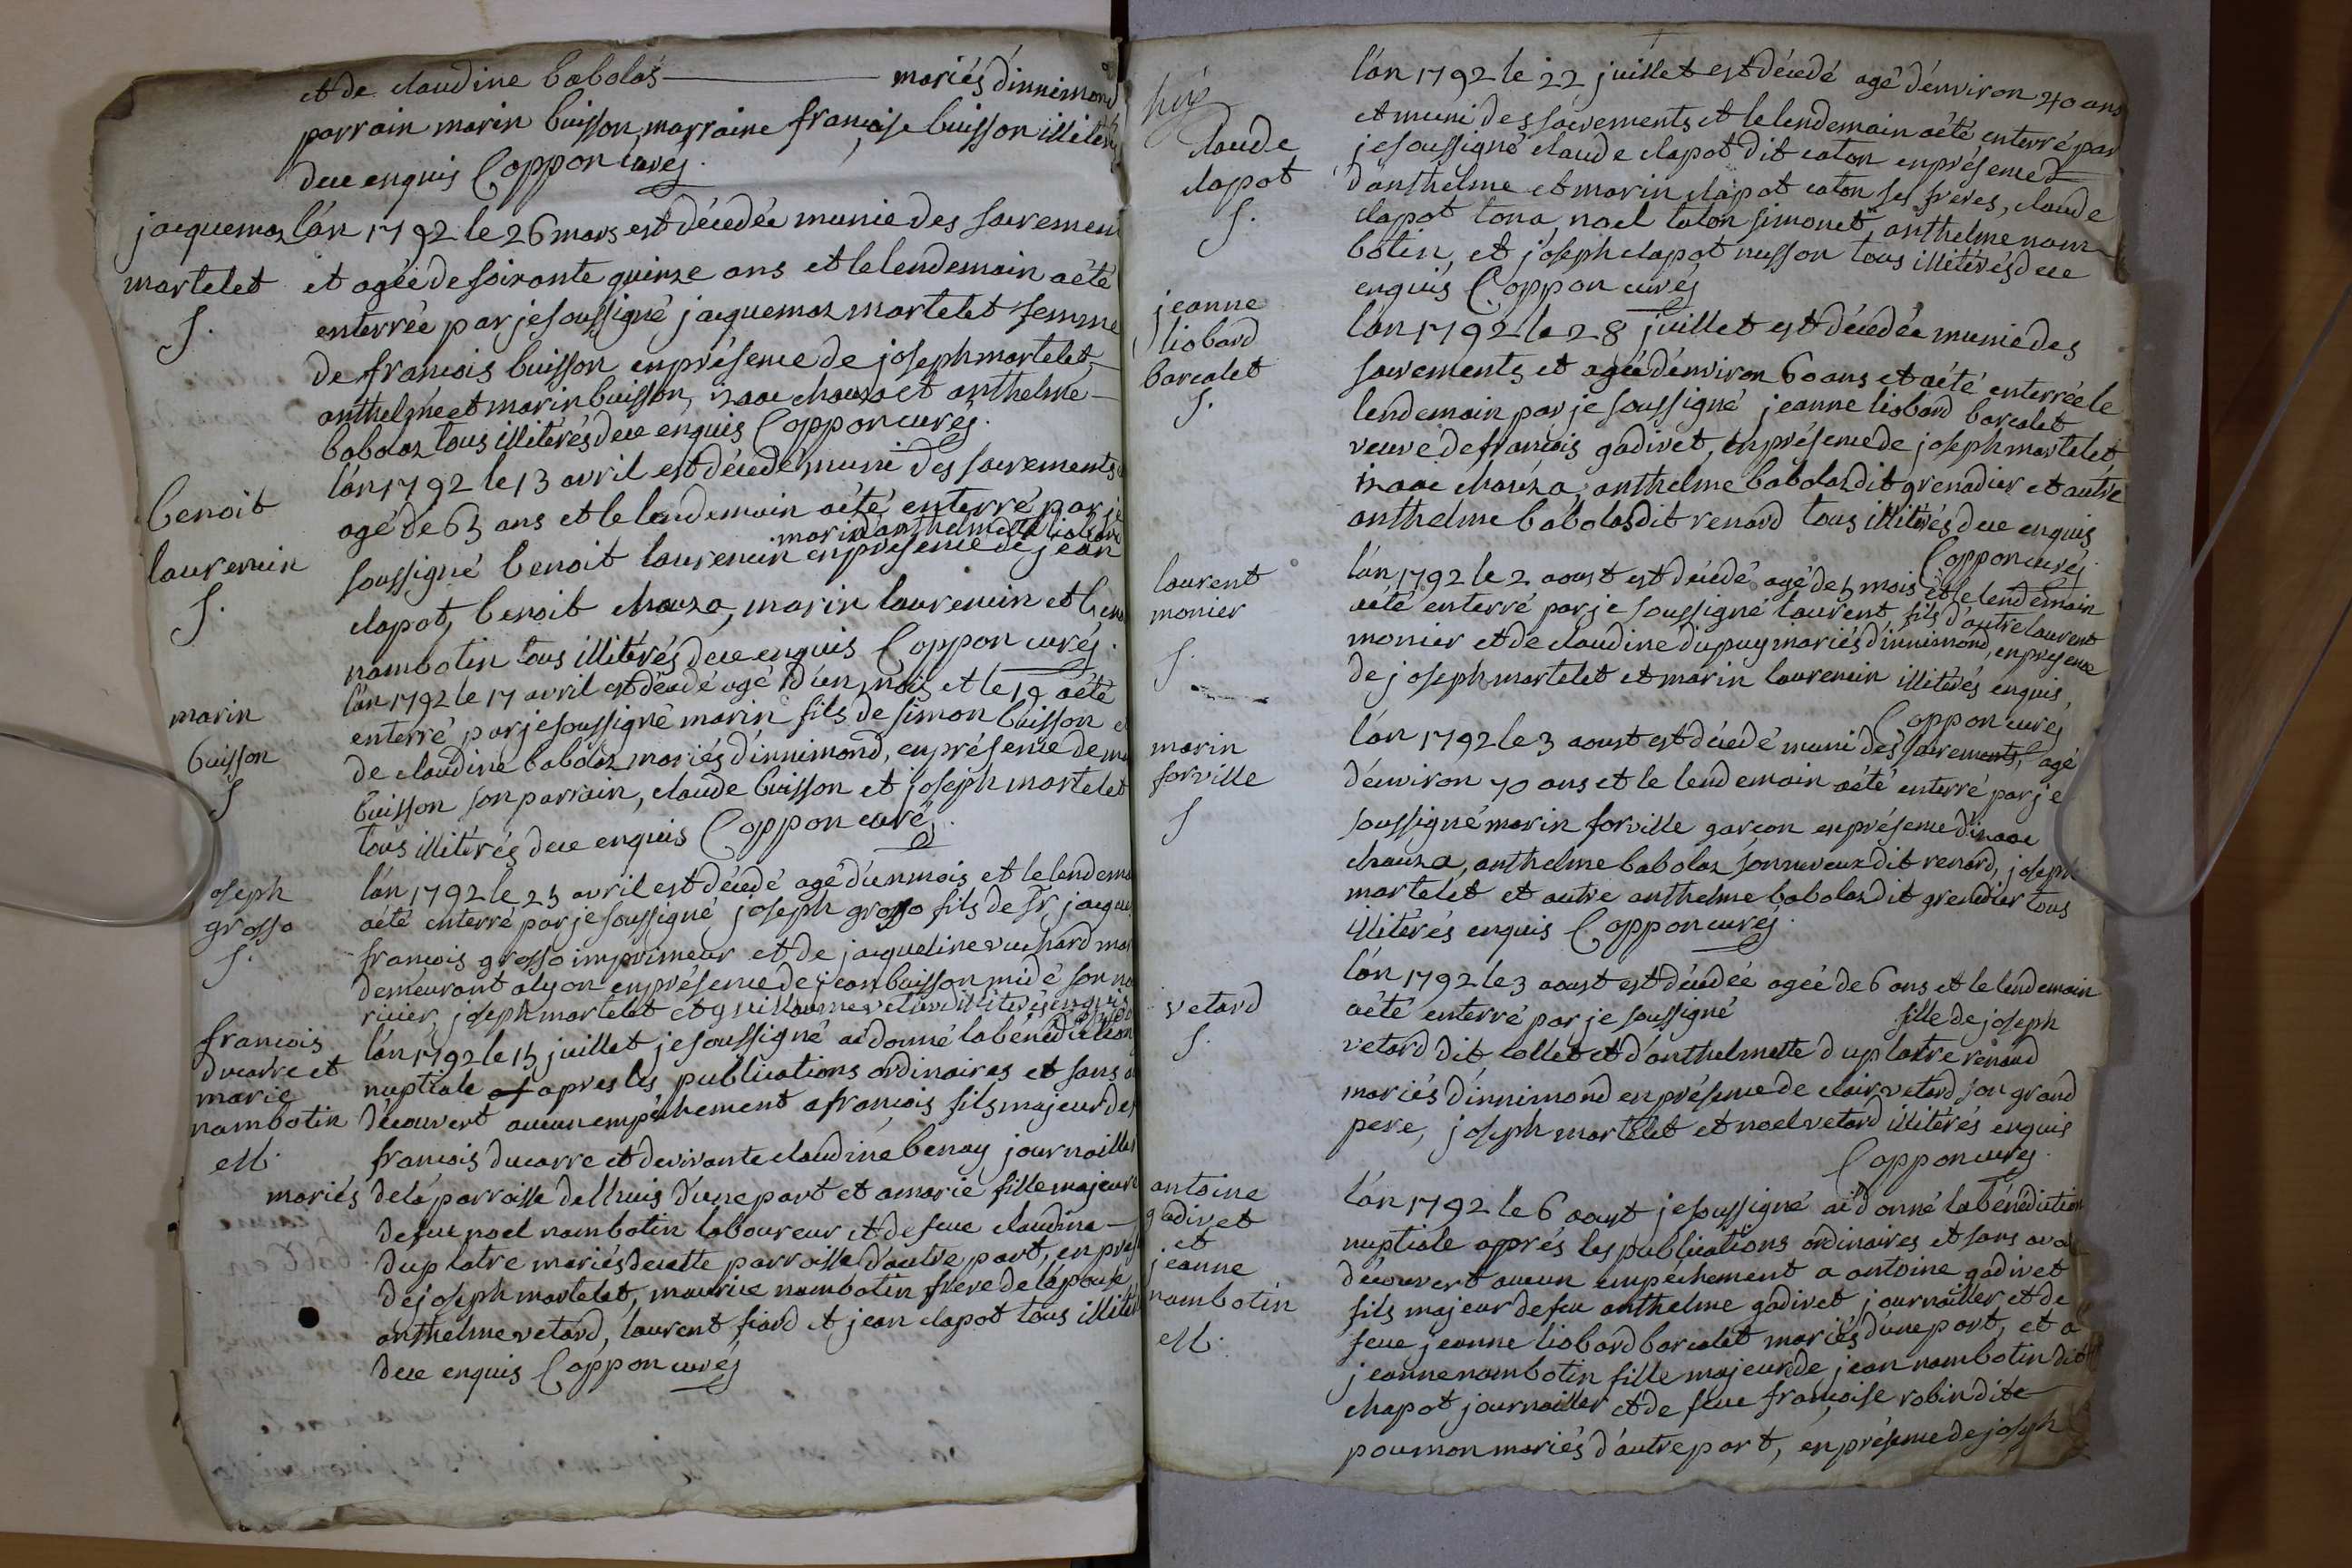 et de claudine babolas mariés d'innimond
parrain marin buisson, marraine françoise buisson illiterés
dece enquis Coppon curé
jacquemaz
martelet
S.
l'án 1792 le 26 mars est décedée munie des sacremen
et agée de soixante quinze ans et le lendemain aété
enterrée par je soussigné jacquemaz martelet femme
de francois buisson en présence de joseph martelet,
anthelme et marin buisson, izaac chauza et anthelme
babolaz tous illitérés dece enquis Coppon curé.
benoit
laurencin
S.
l'án 1792 le 13 avril est décedé muni des sacrements
agé de 65 ans et le lendemain aété enterré par je
mari d'anthelmette liobard
soussigné benoit laurencin en présence de jean
clapot, benoit chauza, marin laurencin et
nambotin tous illitérés dece enquis Coppon curé.
marin
buisson
S
l'án 1792 le 17 avril est décedé agé d'un mois et le 19 aété
enterré par je soussigné marin fils de simon buisson
de claudine babolaz mariés d'innimond, en présence de
buisson son parrain, claude buisson et joseph martelet
tous illitérés dece enquis Coppon curé
oseph
grosso
S.
l'án 1792 le 25 avril est décedé agé d'un mois et le lendema
aété enterré par je soussigné joseph grosso fils de Sr jacque
francois grosso imprimeur et de jacqueline vuchard mar
demeurant a lyon en présence de jean buisson midé son no
ricier, joseph martelet et guillaume vetard illiterés enquis
francois
ducarre et
marie
nambotin
M.
mariés
l'án 1792 le 15 juillet je soussigné ai donné la bénédiction
nuptiale apres les publications ordinaires et sans a
découvert aucun empéchement a francois fils majeur de
francois ducarre et de vivante claudine benay journaillers
de la parroisse de lhuis d'une part et a marie fille majeure
de feu noel nambotin laboureur et de feue claudine
duplatre mariés de cette parroisse d'autre part, en prése
de joseph martelet, maurice nambotin frere de l'épouse
anthelme vetard, laurent fiard et jean clapot tous illité
dece enquis Coppon curé
claude
clapot
S.
l'án 1792 le 22 juillet est décedé agé d'environ 40 ans
et muni des sacrements et le lendemain aété enterré par
je soussigné claude clapot dit caton en présence
d'anthelme et marin clapot caton ses freres, claude
clapot tona, noel caton simonet, anthelme nam
botin, et joseph clapot nusson tous illitérés dece
enquis Coppon curé
jeanne
liobard
barcalet
S.
l'án 1792 le 28 juillet est décedée munie des
sacrements et agée d'environ 60 ans et aété enterrée le
lendemain par je soussigné jeanne liobard barcalet
veuve de francois gadivet, en présence de joseph martelet
izaac chauza, anthelme babolaz dit grenadier et autre
anthelme babolas dit renard tous illitérés dece enquis
Coppon curé.
laurent
monier
S.
l'án 1792 le 2 aoust est décedé agé de 5 mois et le lendemain
aété enterré par je soussigné laurent, fils d'autre laurent
monier et de claudine dupuy mariés d'innimond, en présence
de joseph martelet et marin laurencin illitérés enquis,
Coppon curé
marin
forville
S
l'án 1792 le 3 aoust est décedé muni des sacrements, agé
d'environ 70 ans et le lendemain aété enterré par je
soussigné marin forville garcon en présence d'izaac
chauza, anthelme babolaz son neveux dit renard, joseph
martelet et autre anthelme babolaz dit grenadier tous
illitérés enquis Coppon curé.
vetard
S.
l'án 1792 le 3 aoust est décedée agée de 6 ans et le lendemain
aété enterré par je soussigné fille de joseph
vetard dit collet et d'anthelmette duplatre renaud
mariés d'innimond en présence de clair vetard son grand
pere, joseph martelet et noel vetard illitérés enquis
Coppon curé.
antoine
gadivet
et
jeanne
nambotin
M.
l'án 1792 le 6 aoust je soussigné ai donné la bénédiction
nuptiale apprés les publications ordinaires et sans avoi
découvert aucun empéchement a antoine gadivet
fils majeur de feu anthelme gadivet journailler et de
feue jeanne liobard barcalet mariés d'une part, et a
jeanne nambotin fille majeure de jean nambotin dit
chapot journailler et de feue françoise robin dite
poumon mariés d'autre part, en présence de joseph